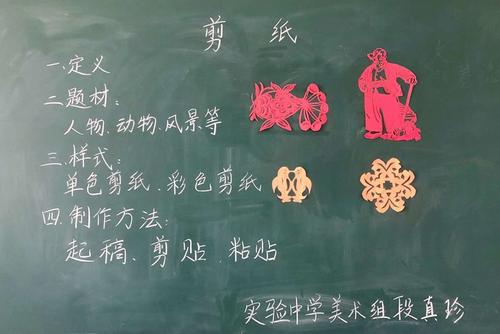 剪纸
一.定义
二.题材:
人物、动物、风景等
三.样式:
单色剪纸、彩色剪纸
四.制作方法:
起稿、剪贴、粘贴
实验中学美术组段真珍